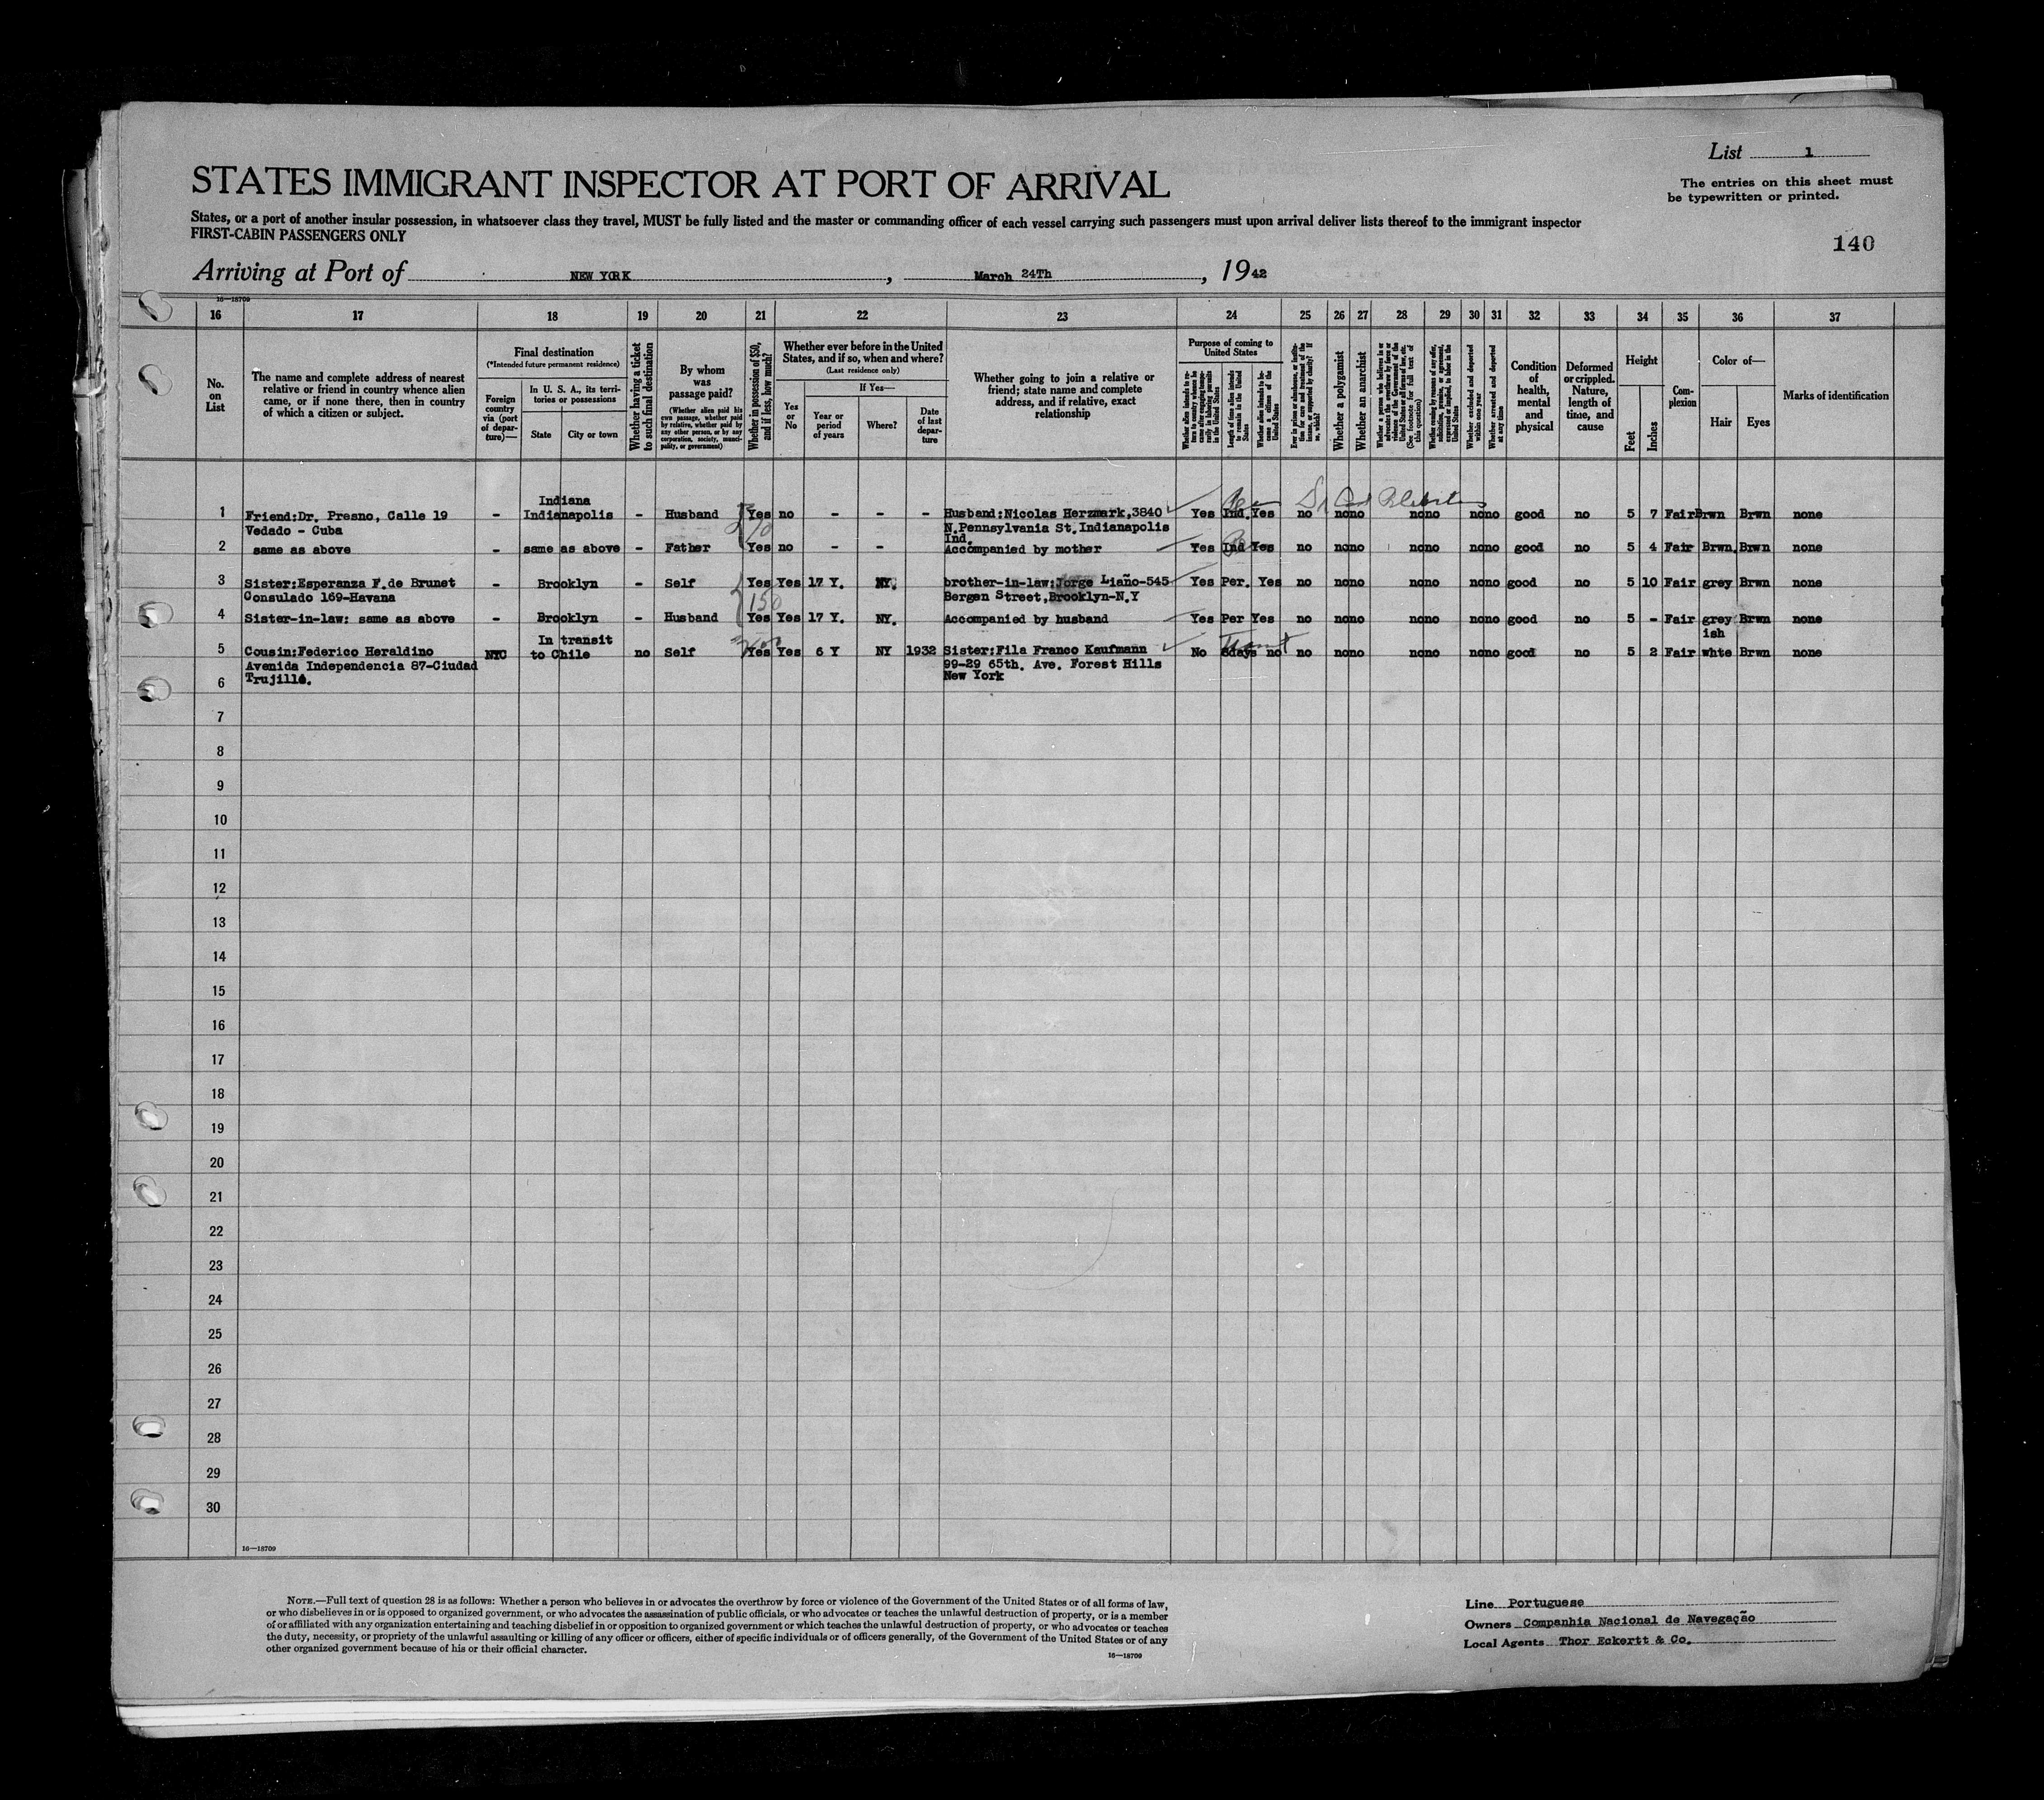 List 1
The entries on this sheet must
be typewritten or printed.
140
STATES IMMIGRANT INSPECTOR AT PORT OF ARRIVAL
States, or a port of another insular possession, in whatsoever class they travel, MUST be fully listed and the master or commanding officer of each vessel carrying such passengers must upon arrival deliver lists thereof to the immigrant inspector
FIRST-CABIN PASSENGERS ONLY
Arriving at Port of NEW YORK, March 24Th, 1942
16—18709
16 17 18 19 20 21 22 23 24 25 26 27 28 29 30 31 32 33 34 35 36 37
No. on List
The name and complete address of nearest relative or friend in country whence alien came, or if none there, then in country of which a citizen or subject.
Final destination
(*Intended future permanent residence)
Foreign country via (port of departure)—
In U. S. A., its territories or possessions
State City or town
Whether having a ticket to such final destination
By whom was passage paid?
(Whether alien paid his own passage, whether paid by relative, whether paid by any other person, or by any corporation, society, municipality, or government)
Whether in possession of $50, and if less, how much?
Whether ever before in the United States, and if so, when and where?
(Last residence only)
Yes or No
If Yes—
Year or period of years
Where?
Date of last departure
Whether going to join a relative or friend; state name and complete address, and if relative, exact relationship
Purpose of coming to United States
Whether alien intends to return to country whence he came after engaging temporarily in laboring pursuits in the United States
Length of time alien intends to remain in the United States
Whether alien intends to become a citizen of the United States
Ever in prison or almshouse, or institution for care and treatment of the insane, or supported by charity? If so, which?
Whether a polygamist
Whether an anarchist
Whether a person who believes in or advocates the overthrow by force or violence of the Government of the United States or all forms of law, etc. (See footnote for full text of this question)
Whether coming by reasons of any offer, solicitation, promise, or agreement, expressed or implied, to labor in the United States
Whether excluded and deported within one year
Whether arrested and deported at any time
Condition of health, mental and physical
Deformed or crippled. Nature, length of time, and cause
Height
Feet Inches
Complexion
Color of—
Hair Eyes
Marks of identification
Indiana
1 Friend:Dr. Presno, Calle 19 - Indianapolis - Husband Yes no - - - Husband:Nicolas Herzmark,3840 Yes Ind. Yes no no no no no no no good no 5 7 Fair Brwn Brwn none
Vedado - Cuba 10 N.Pennsylvania St.Indianapolis
Ind.
2 same as above - same as above - Father Yes no - - Accompanied by mother Yes Ind Yes no no no no no no no good no 5 4 Fair Brwn. Brwn none
3 Sister:Esperanza F.de Brunet - Brooklyn - Self Yes Yes 17 Y. NY. brother-in-law:Jorge Liaño-545 Yes Per. Yes no no no no no no no good no 5 10 Fair grey Brwn none
Consulado 169-Havana 150 Bergen Street,Brooklyn-N.Y
4 Sister-in-law: same as above - Brooklyn - Husband Yes Yes 17 Y. NY. Accompanied by husband Yes Per Yes no no no no no no no good no 5 - Fair grey Brwn none
ish
In transit
5 Cousin:Federico Heraldino NYC to Chile no Self Yes Yes 6 Y NY 1932 Sister:Fila Franco Kaufmann No 8days no no no no no no no no good no 5 2 Fair whte Brwn none
Avenida Independencia 87-Ciudad 99-29 65th. Ave. Forest Hills
Trujillo. New York
6
7
8
9
10
11
12
13
14
15
16
17
18
19
20
21
22
23
24
25
26
27
28
29
30
16—18709
NOTE.—Full text of question 28 is as follows: Whether a person who believes in or advocates the overthrow by force or violence of the Government of the United States or of all forms of law,
or who disbelieves in or is opposed to organized government, or who advocates the assassination of public officials, or who advocates or teaches the unlawful destruction of property, or is a member
of or affiliated with any organization entertaining and teaching disbelief in or opposition to organized government or which teaches the unlawful destruction of property, or who advocates or teaches
the duty, necessity, or propriety of the unlawful assaulting or killing of any officer or officers, either of specific individuals or of officers generally, of the Government of the United States or of any
other organized government because of his or their official character.
16—18709
Line Portuguese
Owners Companhia Nacional de Navegação
Local Agents Thor Eckertt & Co.